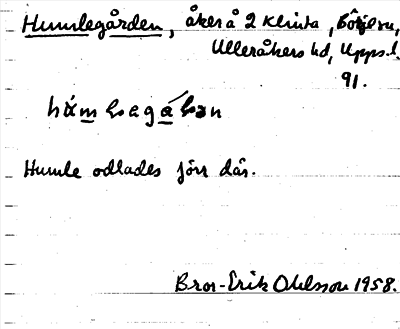 Humlegården, åker å 2 Klinta, Bälinge sn,
Ulleråkers hd, Upps. l.
91.
Humle odlades förr där.
Bror-Erik Ohlsson 1958.